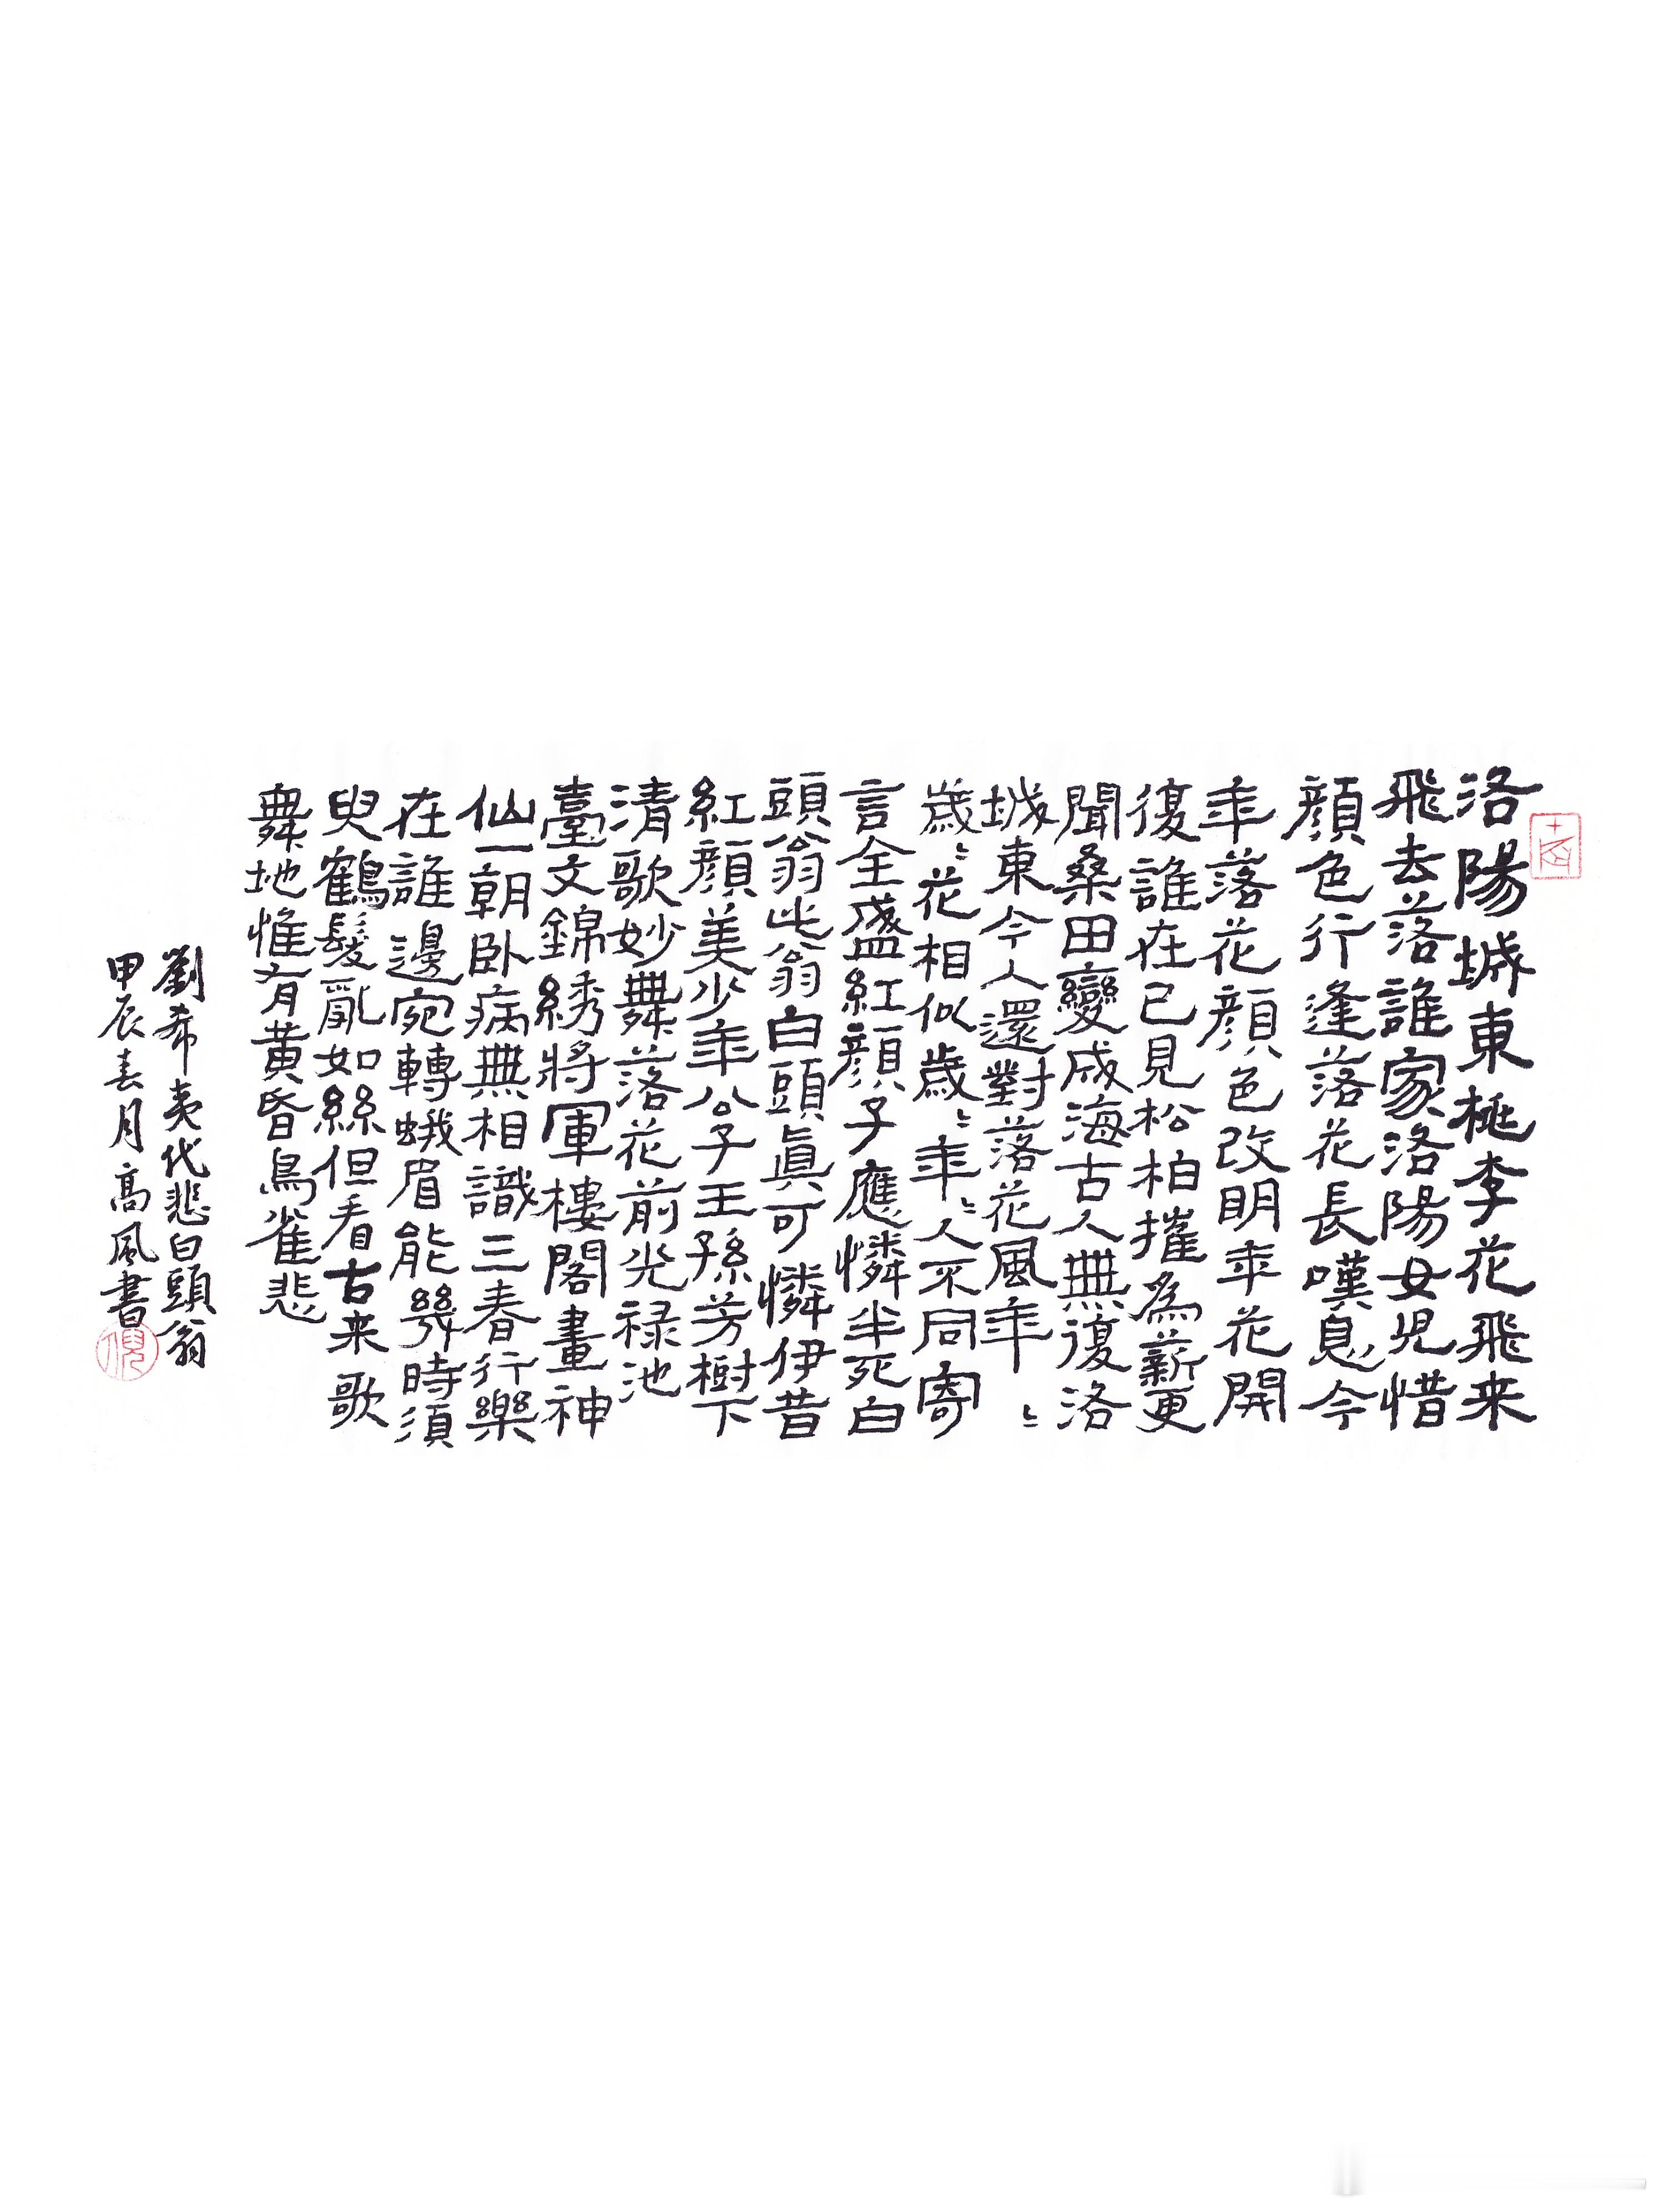 洛陽城東桃李花飛来
飛去落誰家洛陽女児惜
顔色行逢落花長嘆息今
年落花顔色改明年花開
復誰在已見松柏摧為薪更
聞桑田變成海古人無復洛
城東今人還對落花風年〻
歲〻花相似歲〻年〻人不同寄
言全盛紅顔子應憐半死白
頭翁此翁白頭真可憐伊昔
紅顔美少年公子王孫芳樹下
清歌妙舞落花前光禄池
臺文錦綉將軍樓閣畫神
仙一朝卧病無相識三春行樂
在誰邊宛轉蛾眉能幾時須
臾鶴髮亂如絲但看古来歌
舞地惟有黄昏鳥雀悲
劉希夷代悲白頭翁
甲辰春月高風書